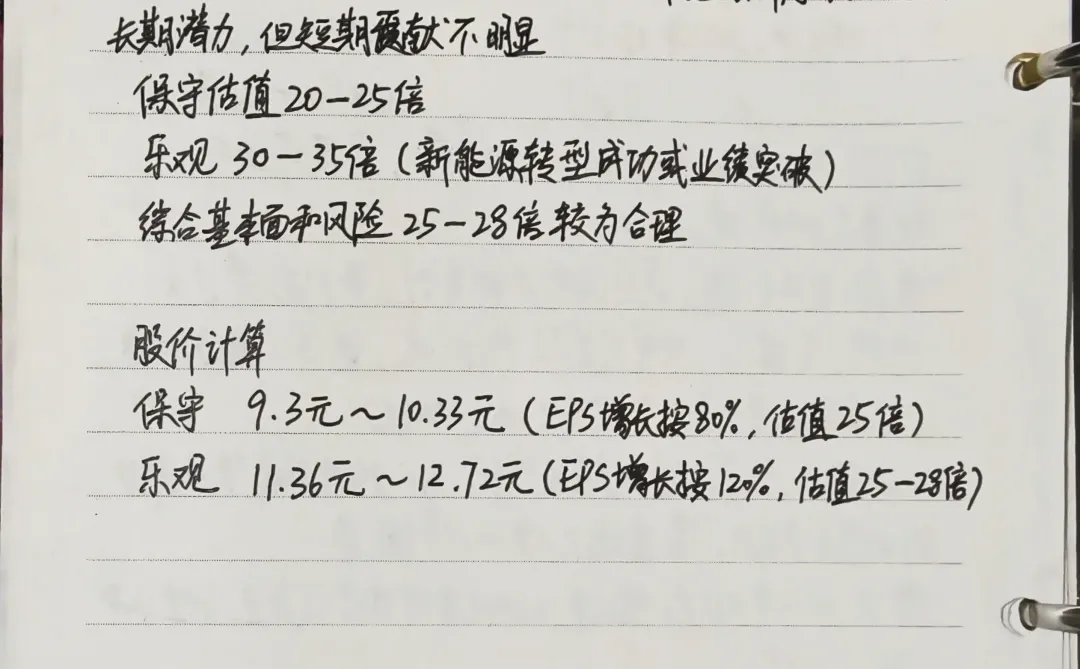 长期潜力,但短期贡献不明显
保守估值20-25倍
乐观 30-35倍(新能源转型成功或业绩突破)
综合基本面和风险 25-28倍较为合理
股价计算
保守 9.3元~10.33元(EPS增长按80%,估值25倍)
乐观 11.36元~12.72元(EPS增长按120%,估值25-28倍)